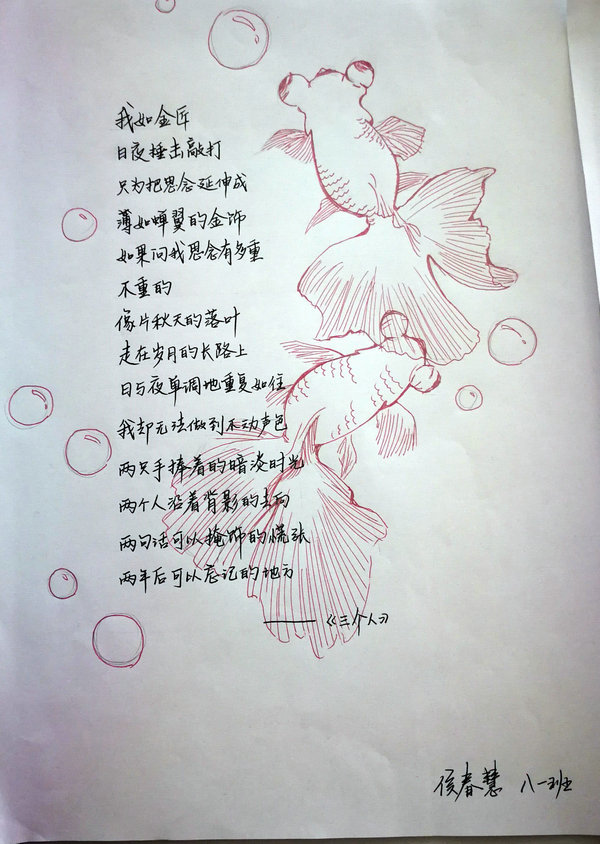 我如金匠
日夜捶击敲打
只为把思念延伸成
薄如蝉翼的金饰
如果问我思念有多重
不重的
像片秋天的落叶
走在岁月的长路上
日与夜单调地重复如住
我却无法做到不动声色
两只手捧着的暗淡时光
两个人沿着背影的去向
两句话可以掩饰的慌张
两年后可以忘记的地方
——《三个人》
侯春慧 八一班